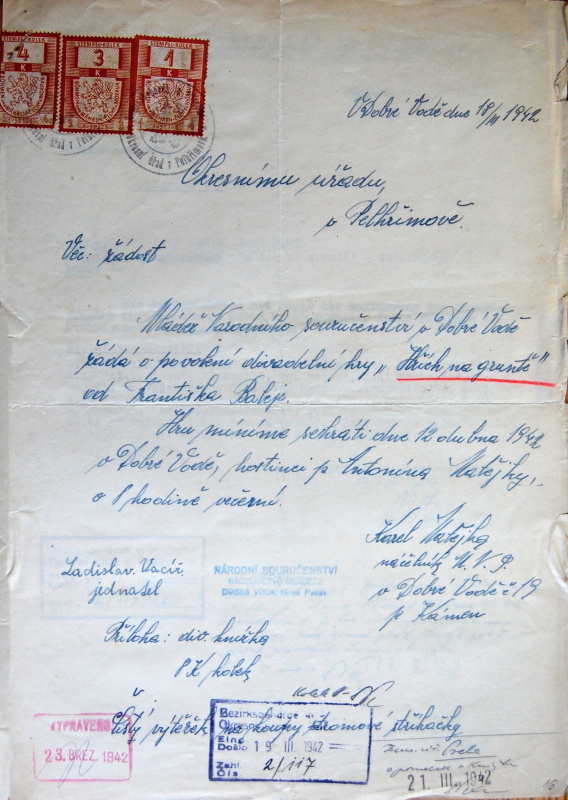 STEMPEL-KOLEK STEMPEL-KOLEK STEMPEL-KOLEK
4 3 1
K K K
V Dobré Vodě dne 18/III 1942
Okresnímu úřadu,
v Pelhřimově.
Věc: žádost
Mládež Národního souručenství v Dobré Vodě
žádá o povolení divadelní hry „Hřích na gruntě"
od Františka Baleje.
Hru míníme sehráti dne 12 dubna 1942
v Dobré Vodě, hostinci p Antonína Matějky,
o 8 hodině večerní.
Karel Matějka
náčelník
v Dobré Vodě č 19
p Kámen
Ladislav Vacíř.
jednatel
NÁRODNÍ SOURUČENSTVÍ
NÁČELNICTVO MLÁDEŽE
DOBRÁ VODA
Příloha: div. knížka
8 K kolek
Čistý výtěžek na koupi hromové stříkačky
VYPRAVENO
23. BŘEZ. 1942
Eing.
Došlo 19 III. 1942
Zahl
Čís. 2/117
21. III. 1942
16